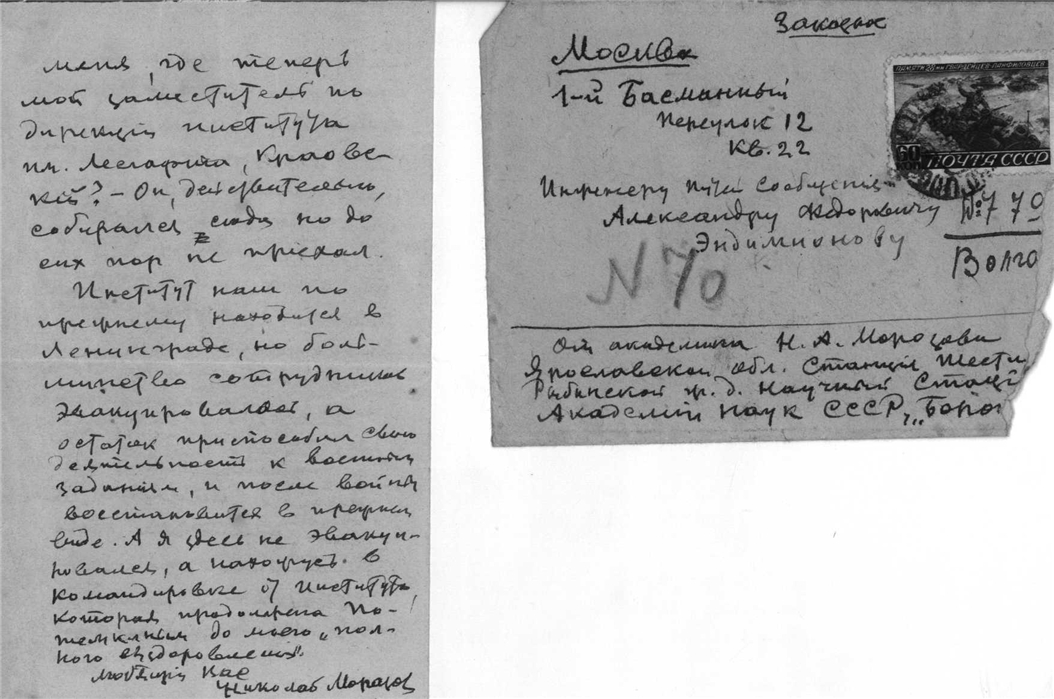 меня, где теперь
мой заместитель по
дирекции института
им. Лесгафта, Краовс-
кий? – Он, действительно,
собирался сюда, но до
сих пор не приехал.
Институт наш по
прежнему находится в
Ленинграде, но боль-
шинство сотрудников
эвакуировалось, а
остаток приспособил свою
деятельность к военным
заданиям, и после войны
восстановится в прежнем
виде. А я здесь не эвакуи-
ровался, а нахожусь в
командировке от Института,
которая продолжена По-
темкиным до моего „пол-
ного выздоровления".
Любящий Вас
Николай Морозов
Заказное
Москва
1-й Басманный
переулок 12
Кв. 22
Инженеру путей сообщения
Александру Федоровичу
Эндимионову
ПАМЯТИ 28-МИ ГВАРДЕЙЦЕВ-ПАНФИЛОВЦЕВ
60
ПОЧТА СССР
№ 770
Волго
N 70
От академика Н. А. Морозова
Ярославской обл. Станция Шести
Рыбинской ж. д. Научный Стаці
Академии Наук СССР, „Боро